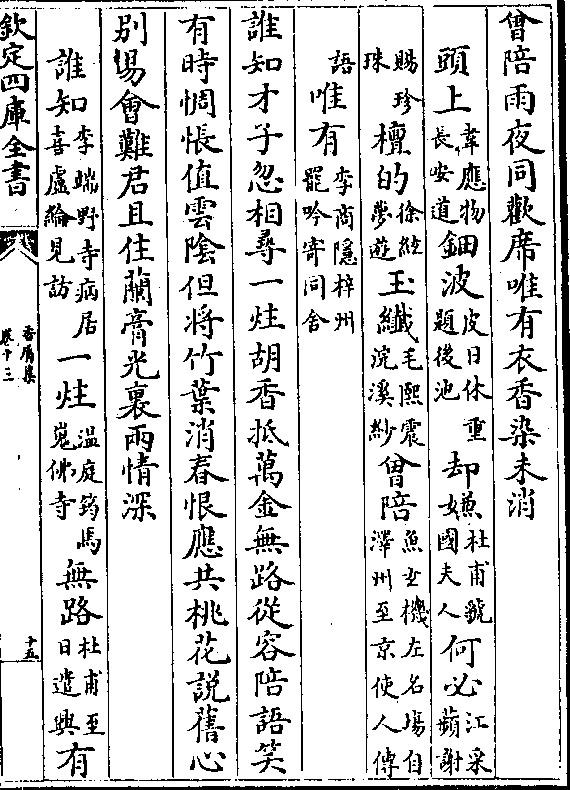 曾陪雨夜同歡席唯有衣香染未消
頭上韋應物長安道鈿波皮日休重題後池却嫌杜甫虢國夫人何必江采蘋謝
賜珍珠檀的徐鉉夢遊玉纖毛熙震浣溪紗曾陪魚玄機左名場自澤州至京使人傳
語唯有李商隱梓州罷吟寄同舍
誰知才子忽相尋一炷胡香抵萬金無路從容陪語笑
有時惆悵值雲陰但將竹葉消春恨應共桃花說舊心
別易會難君且住蘭膏光裏兩情深
誰知李端野寺病居喜盧綸見訪一炷溫庭筠馬嵬佛寺無路杜甫至日遣興有
欽定四庫全書
香屑集
卷十三
十五